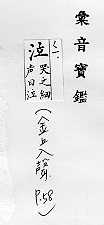 彙音寶鑑
ㄑㄧˋ
泣
哭之細
声曰泣
(金上入聲
P.58)